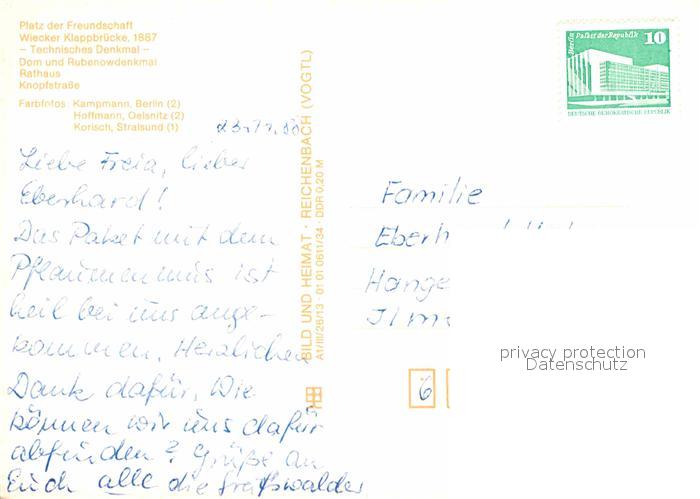 Platz der Freundschaft
Wiecker Klappbrücke, 1887
– Technisches Denkmal –
Dom und Rubenowdenkmal
Rathaus
Knopfstraße
Farbfotos: Kampmann, Berlin (2)
Hoffmann, Oelsnitz (2)
Korisch, Stralsund (1)
Liebe Freia, lieber
Eberhard!
Das Paket mit dem
Pflaumenmus ist
heil bei uns ange-
kommen. Herzlichen
Dank dafür. Wie
können wir uns dafür
abfinden? Grüße an
Euch alle die Greifswalder
BILD UND HEIMAT · REICHENBACH (VOGTL)
A1/III/26/13 · 01 01 0611/34 · DDR 0,20 M
Berlin, Palast der Republik
10
DEUTSCHE DEMOKRATISCHE REPUBLIK
Familie
Eberh
Hange
Ilm
6
privacy protection
Datenschutz